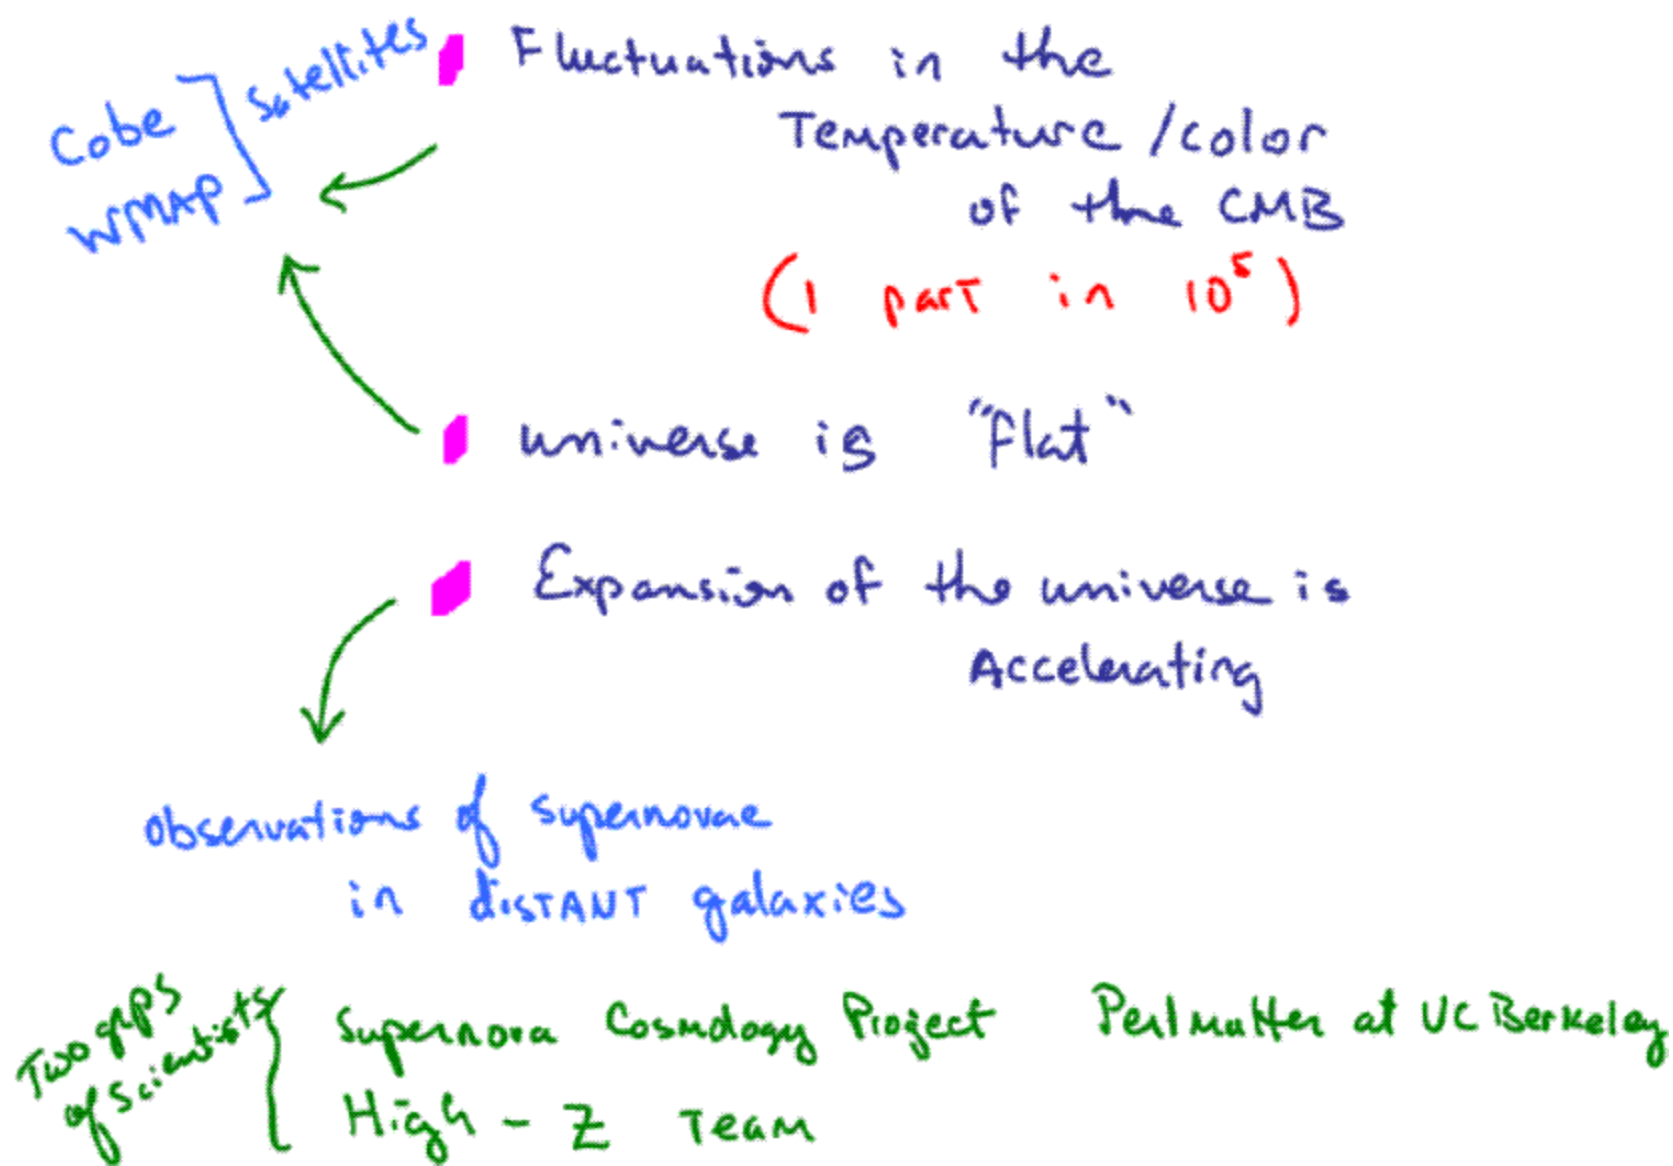 Cobe
WMAP
Satellites
Fluctuations in the
Temperature / color
of the CMB
(1 part in 10⁵)
universe is "flat"
Expansion of the universe is
Accelerating
observations of supernovae
in distant galaxies
Two grps
of Scientists
Supernova Cosmology Project Perlmutter at UC Berkeley
High - Z Team